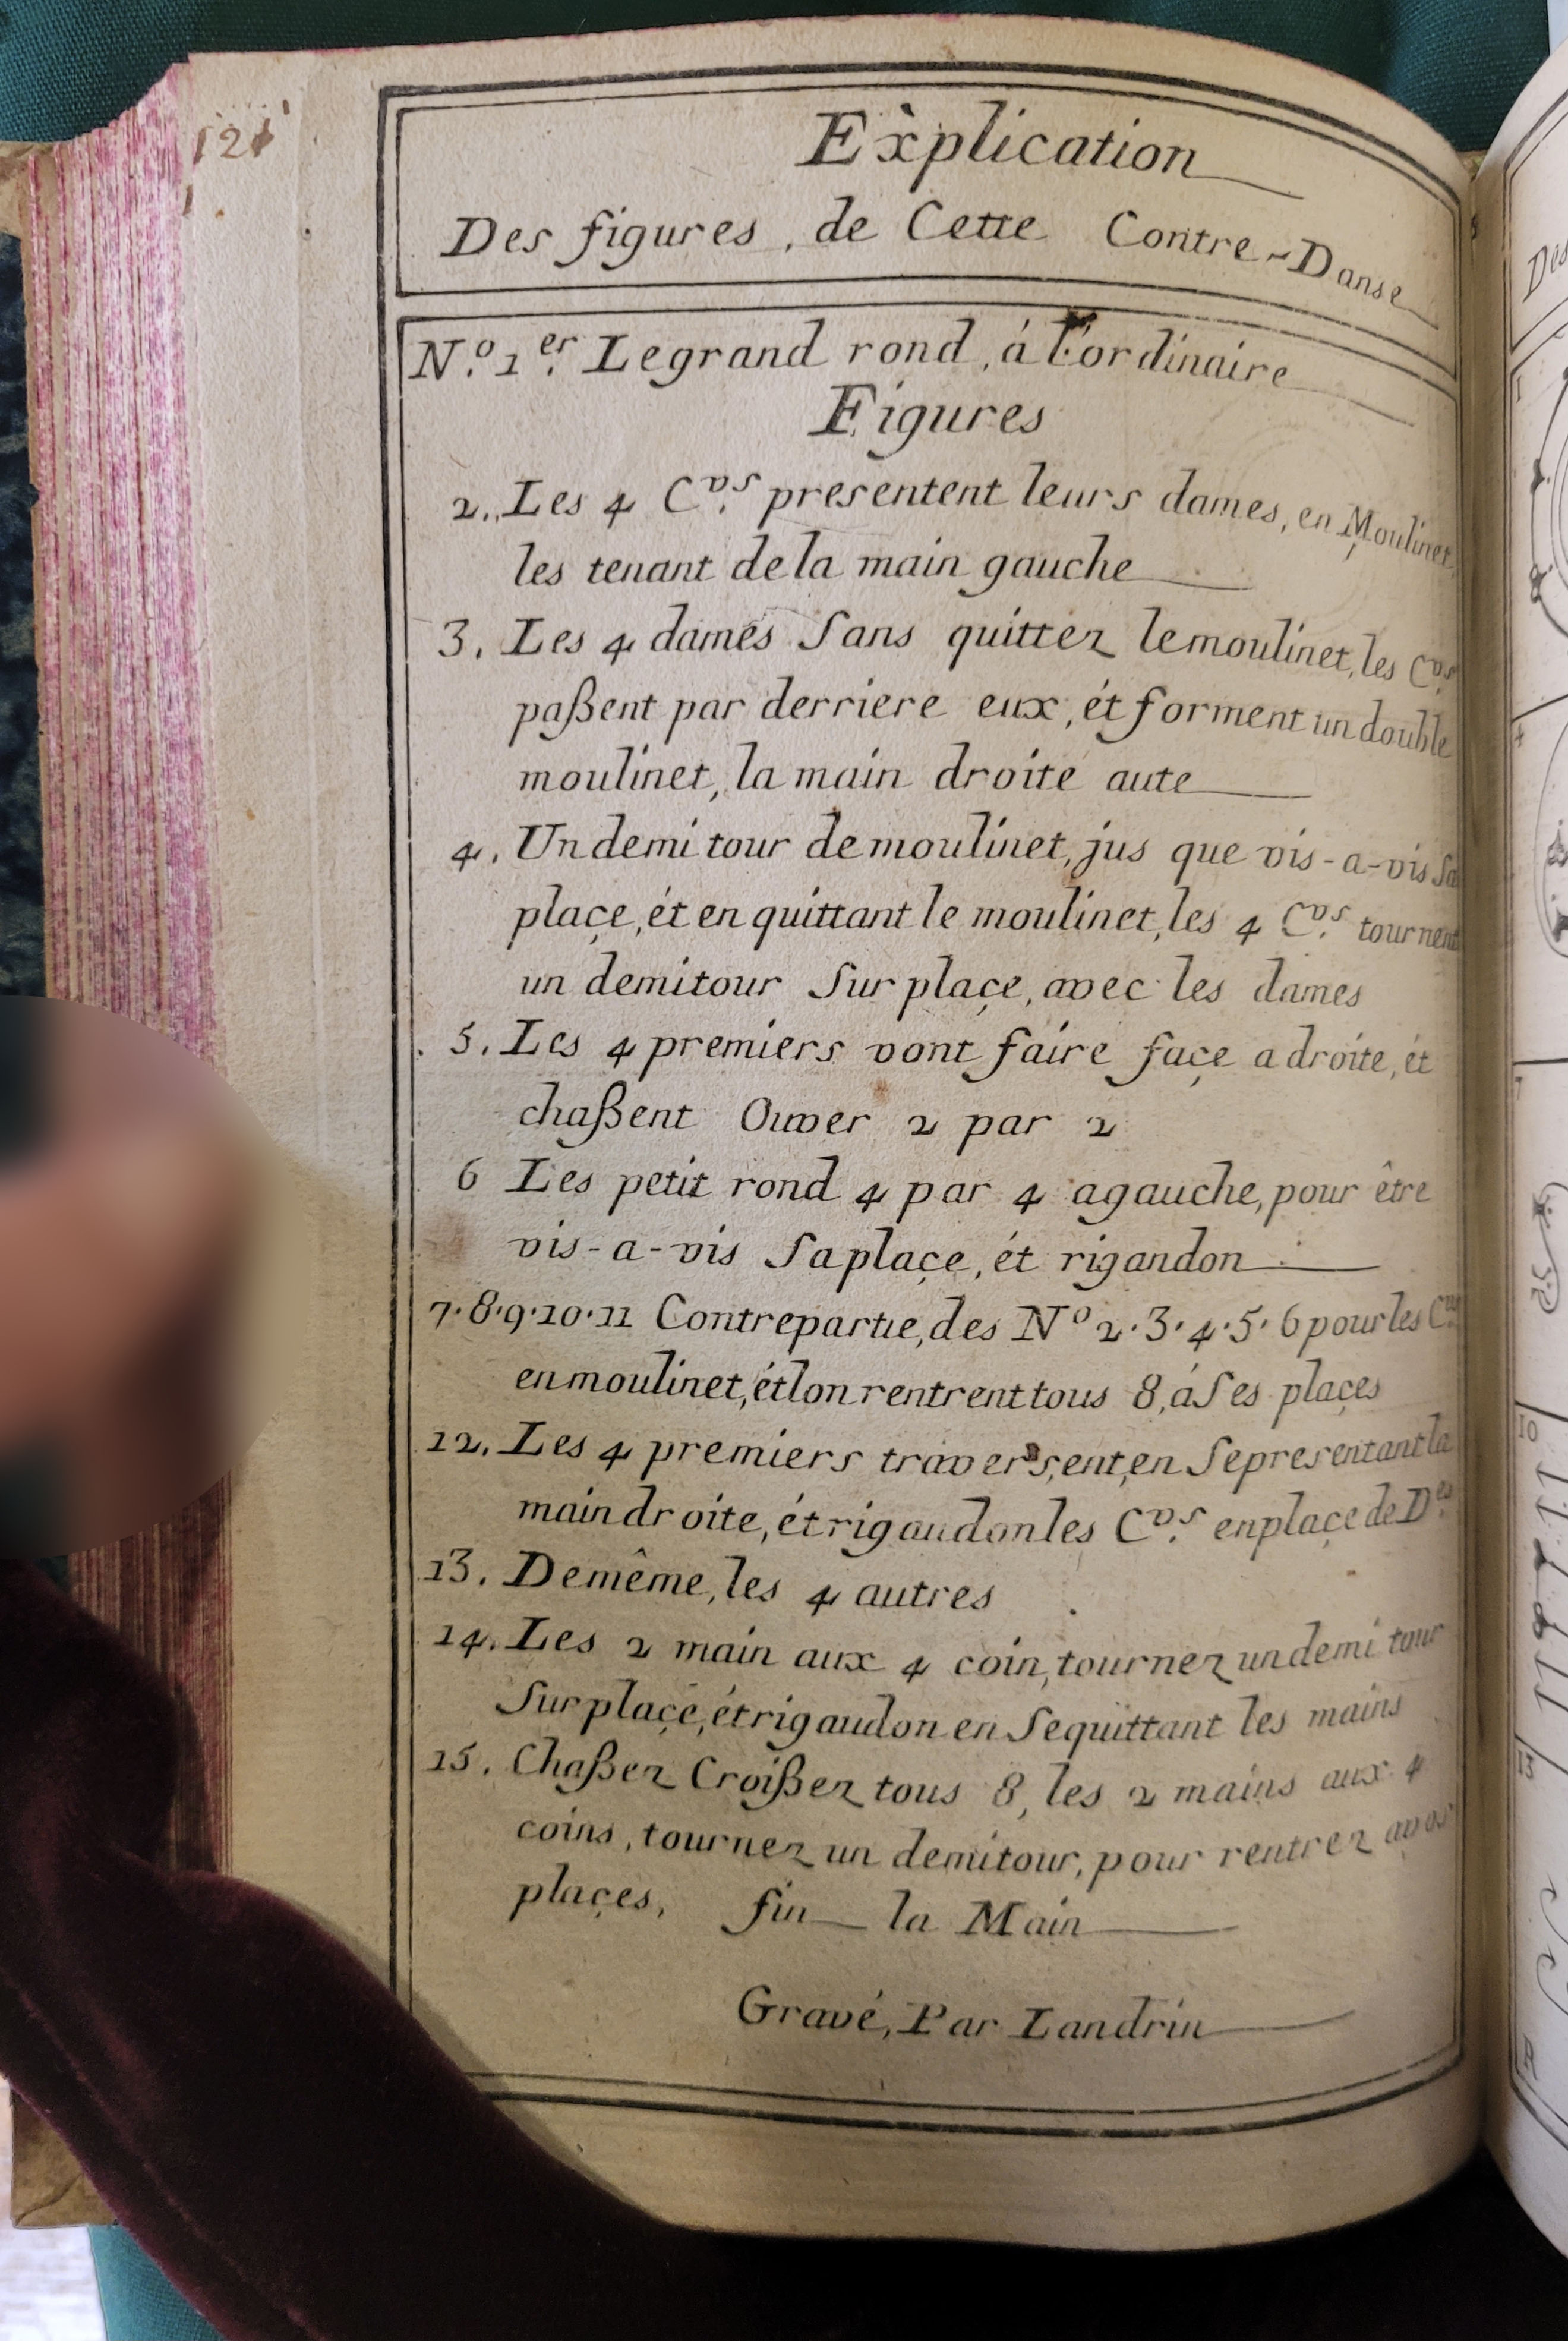 121
Explication
Des figures, de Cette Contre-Danse
N.º 1.er Le grand rond, á l'ordinaire
Figures
2. Les 4 C.vs presentent leurs dames, en Moulinet,
les tenant de la main gauche
3. Les 4 dames Sans quitter le moulinet, les C.vs
paßent par derriere eux, ét forment un double
moulinet, la main droite aute
4. Un demi tour de moulinet, jus que vis-a-vis Sa
plaçe, ét en quittant le moulinet, les 4 C.vs tournent
un demi tour Sur plaçe, avec les dames
5. Les 4 premiers vont faire façe a droite, ét
chaßent Ouver 2 par 2
6 Les petit rond 4 par 4 a gauche, pour être
vis-a-vis Sa plaçe, ét rigandon
7·8·9·10·11 Contrepartie, des Nº 2·3·4·5·6 pour les C.vs
en moulinet, ét lon rentrent tous 8, á Ses plaçes
12. Les 4 premiers traversent, en Se presentant la
main droite, ét rigaudon les C.vs en plaçe de D.es
13. De même, les 4 autres
14. Les 2 main aux 4 coin, tournez un demi tour
Sur plaçe, ét rigaudon en Se quittant les mains
15. Chaßez Croißez tous 8, les 2 mains aux 4
coins, tournez un demi tour, pour rentrer a vos
plaçes, fin la Main
Gravé, Par Landrin